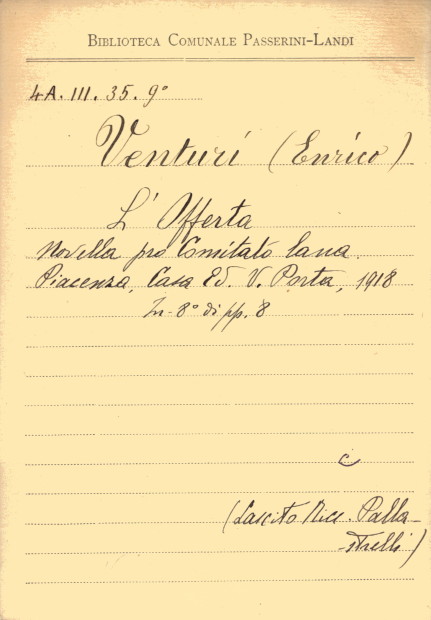 BIBLIOTECA COMUNALE PASSERINI-LANDI
4A. III. 35. 9°
Venturi (Enrico)
L' Offerta
Novella pro Comitato lana.
Piacenza, Casa Ed. V. Porta, 1918
In-8° di pp. 8
c
(Lascito Nicc. Palla-
-strelli)